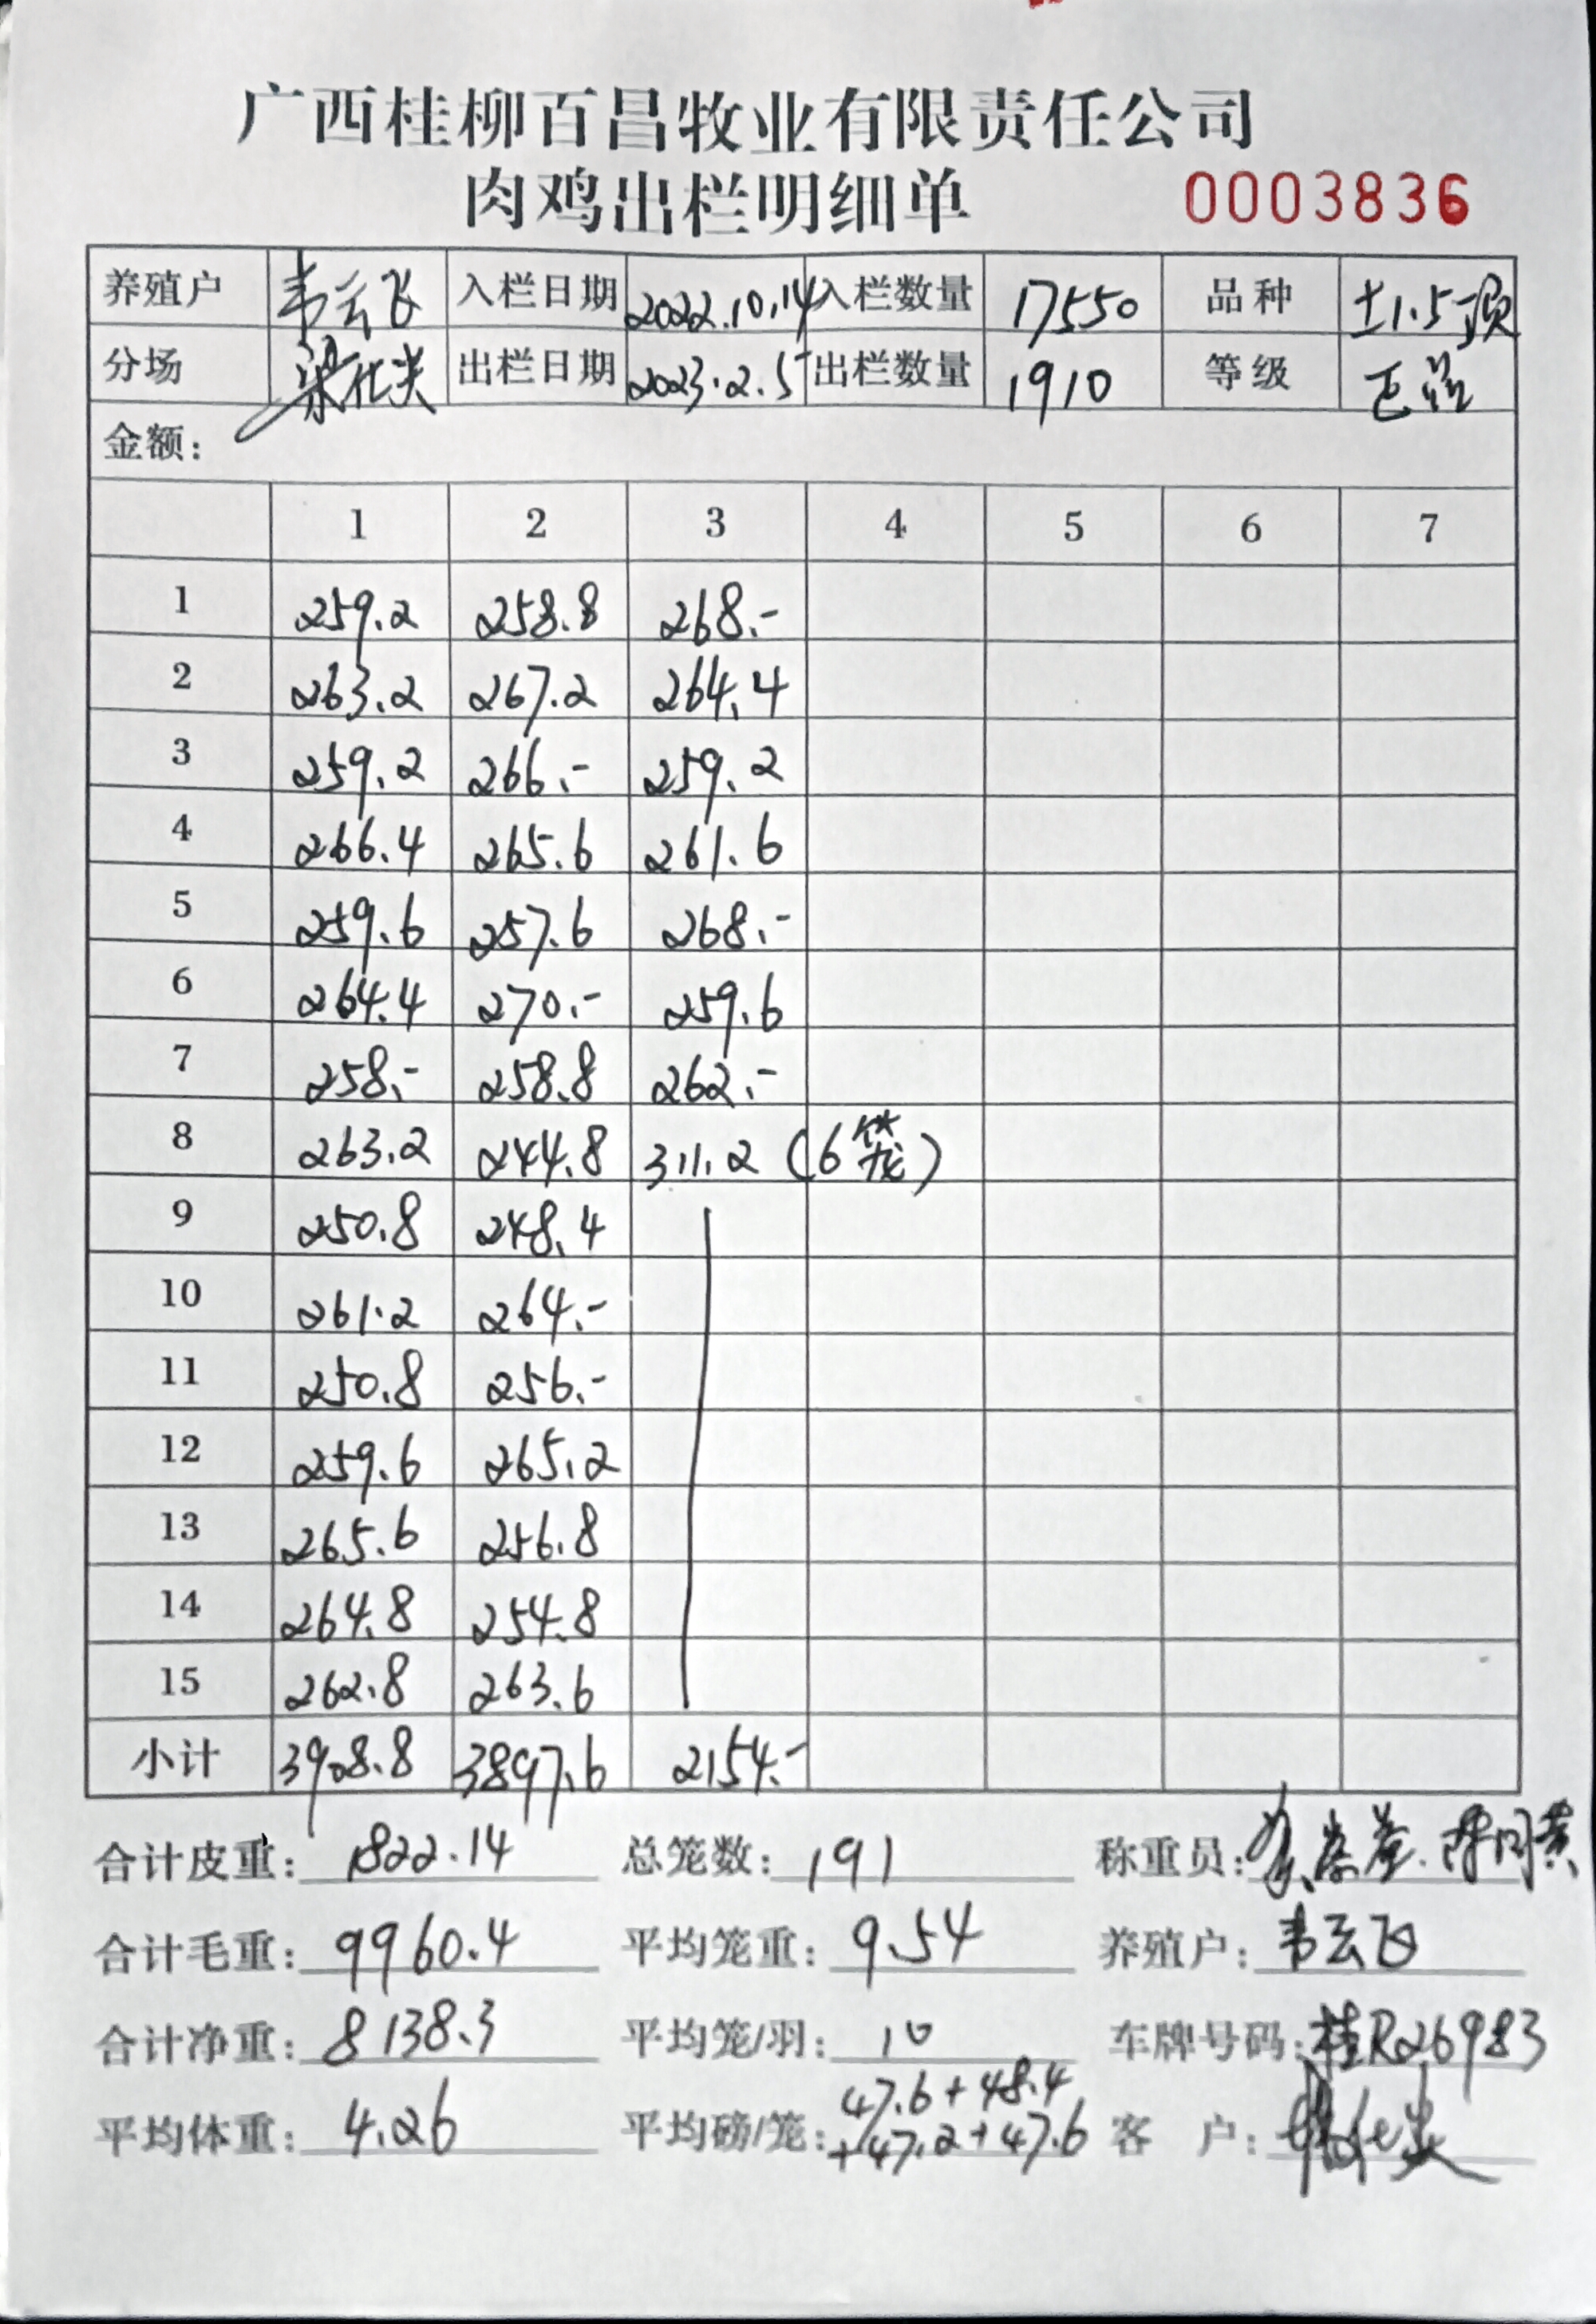 广西桂柳百昌牧业有限责任公司
肉鸡出栏明细单 0003836
养殖户 韦云飞 入栏日期 2022.10.14 入栏数量 17550 品种 土1.5项
分场 出栏日期 2023.2.5 出栏数量 1910 等级
金额：
1 2 3 4 5 6 7
1 259.2 258.8 268.-
2 263.2 267.2 264.4
3 259.2 266.- 259.2
4 266.4 265.6 261.6
5 259.6 257.6 268.-
6 264.4 270.- 259.6
7 258.- 258.8 262.-
8 263.2 244.8 311.2 (6笼)
9 250.8 248.4
10 261.2 264.-
11 250.8 256.-
12 259.6 265.2
13 265.6 256.8
14 264.8 254.8
15 262.8 263.6
小计 3908.8 3897.6 2154.-
合计皮重：1822.14 总笼数：191 称重员：
合计毛重：9960.4 平均笼重：9.54 养殖户：韦云飞
合计净重：8138.3 平均笼/羽：10 车牌号码：桂R26983
平均体重：4.26 平均磅/笼：47.6+48.4+47.2+47.6 客 户：